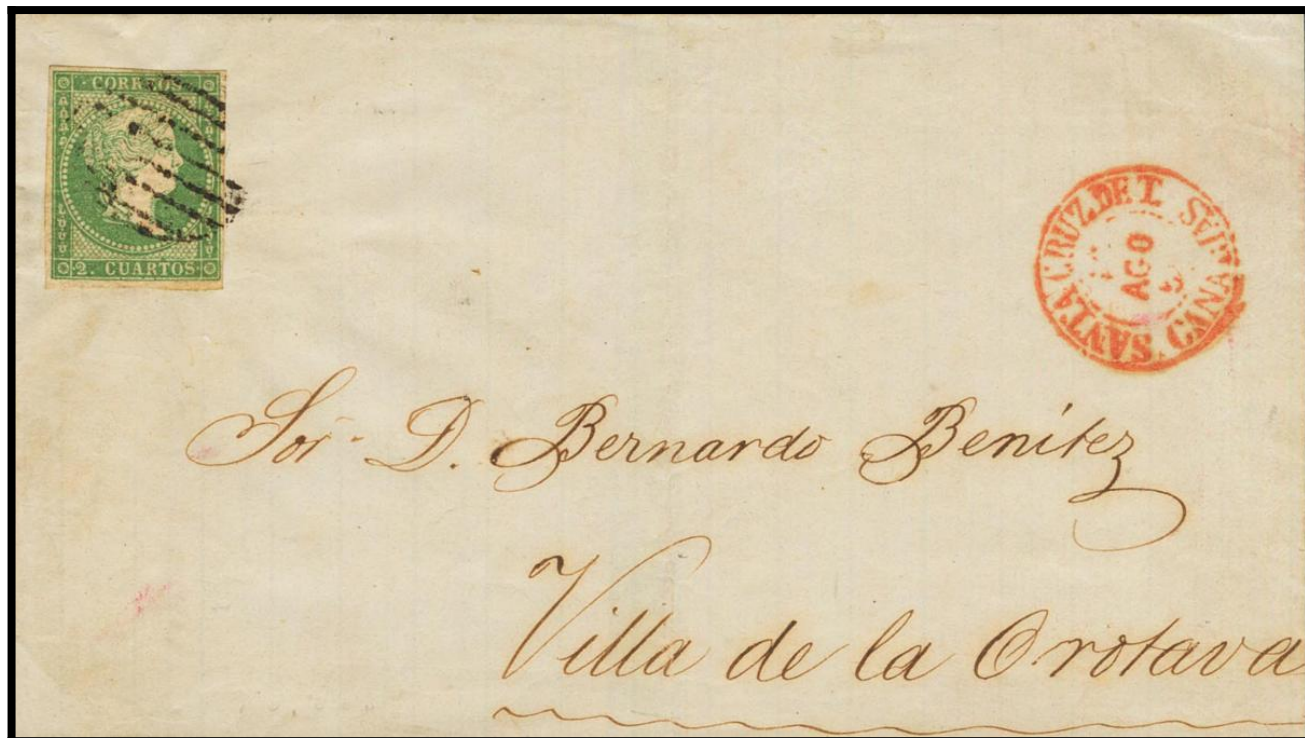 CORREOS
2. CUARTOS
SANTA CRUZ DE T.
AGO
CANARIAS
Sor. D. Bernardo Benítez
Villa de la Orotava